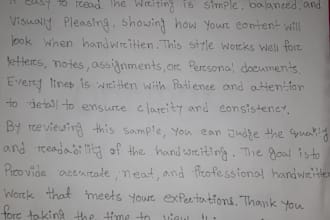 easy to read the writing is simple, balanced, and
Visually Pleasing, showing how your content will
look when handwritten. This style works well for
letters, notes, assignments, or Personal documents.
Every lines is written with Patience and attention
to detail to ensure clarity and consistency.
By reviewing this sample, you can Judge the quality
and readability of the handwriting. The goal is to
Provide accurate, neat, and Professional handwritten
work that meets your expectations. Thank you
for taking the time to view